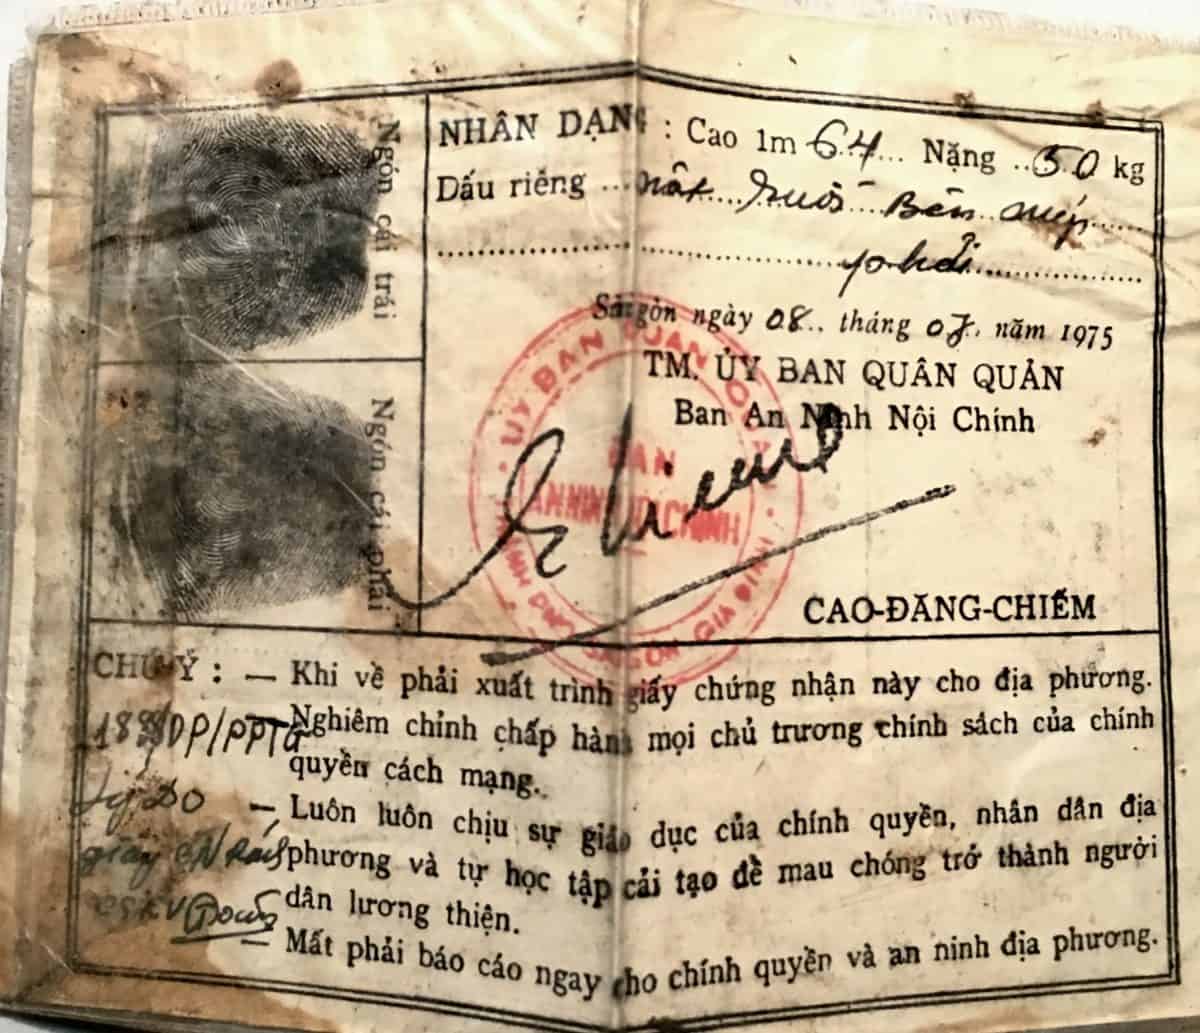 Ngón cái trái
Ngón cái phải
NHÂN DẠNG : Cao 1m 64 Nặng 50 kg
Dấu riêng nốt ruồi Bên mép
phải
Sài gòn ngày 08 tháng 07 năm 1975
TM. ỦY BAN QUÂN QUẢN
Ban An Ninh Nội Chính
ỦY BAN QUÂN QUẢN
BAN
AN NINH NỘI CHÍNH
THÀNH PHỐ SÀI GÒN GIA ĐỊNH
CAO-ĐĂNG-CHIẾM
CHÚ Ý : — Khi về phải xuất trình giấy chứng nhận này cho địa phương.
— Nghiêm chỉnh chấp hành mọi chủ trương chính sách của chính
quyền cách mạng.
— Luôn luôn chịu sự giáo dục của chính quyền, nhân dân địa
phương và tự học tập cải tạo để mau chóng trở thành người
dân lương thiện.
— Mất phải báo cáo ngay cho chính quyền và an ninh địa phương.
Lý Do
giấy CN